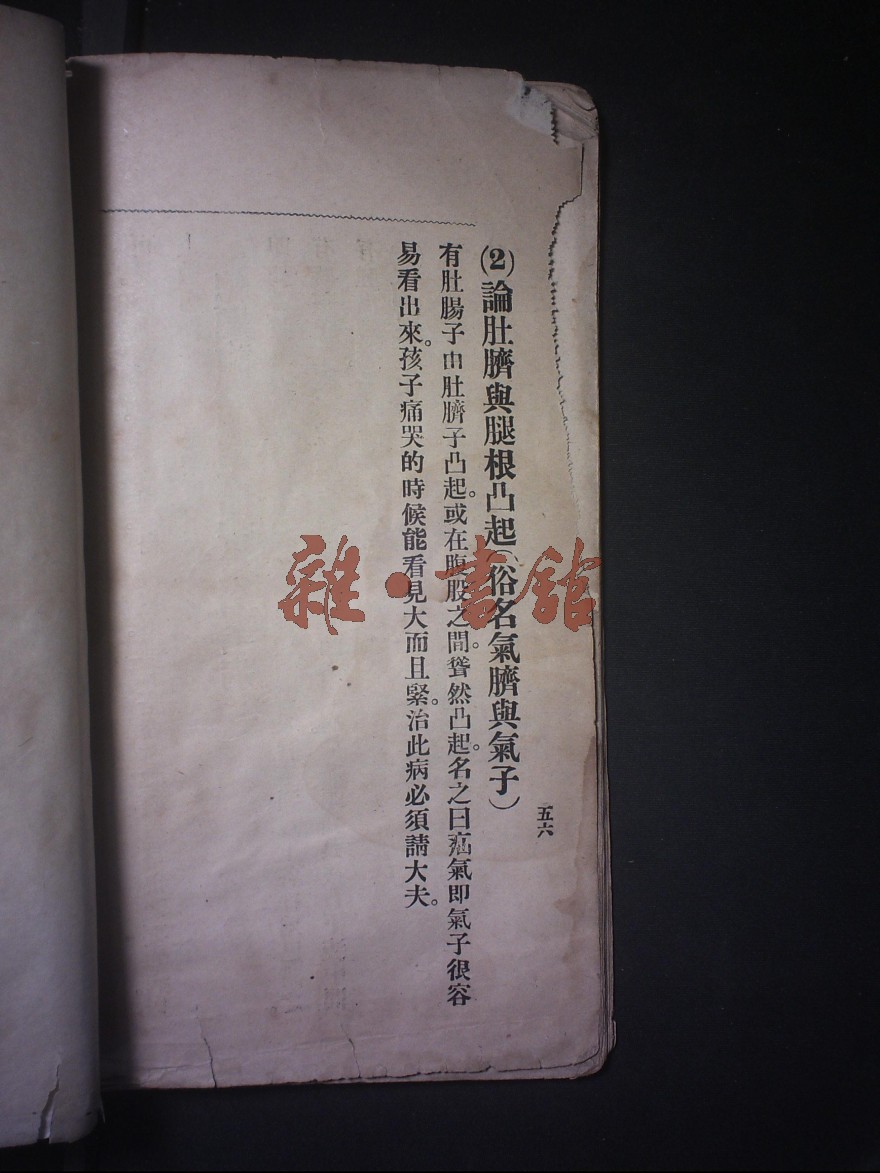 五六
(2)論肚臍與腿根凸起(俗名氣臍與氣子)
有肚腸子由肚臍子凸起。或在腹股之間。聳然凸起。名之曰疝氣即氣子很容
易看出來。孩子痛哭的時候能看見大而且緊。治此病必須請大夫。
雜·書館